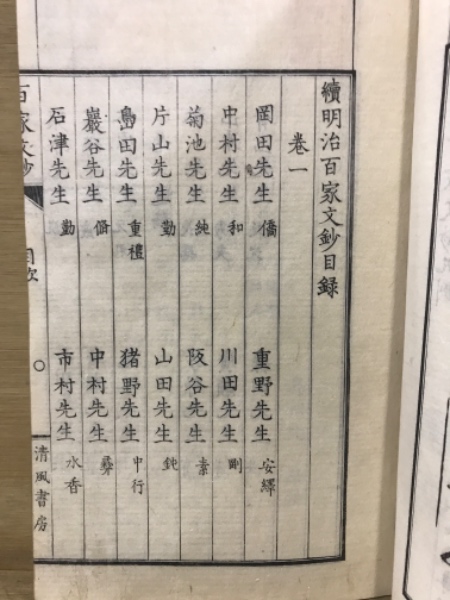 續明治百家文鈔目録
卷一
岡田先生 僑 重野先生 安繹
中村先生 和 川田先生 剛
菊池先生 純 阪谷先生 素
片山先生 勤 山田先生 鈍
島田先生 重禮 猪野先生 中行
巖谷先生 脩 中村先生 彝
石津先生 勤 市村先生 水香
百家文鈔 目次 清風書房